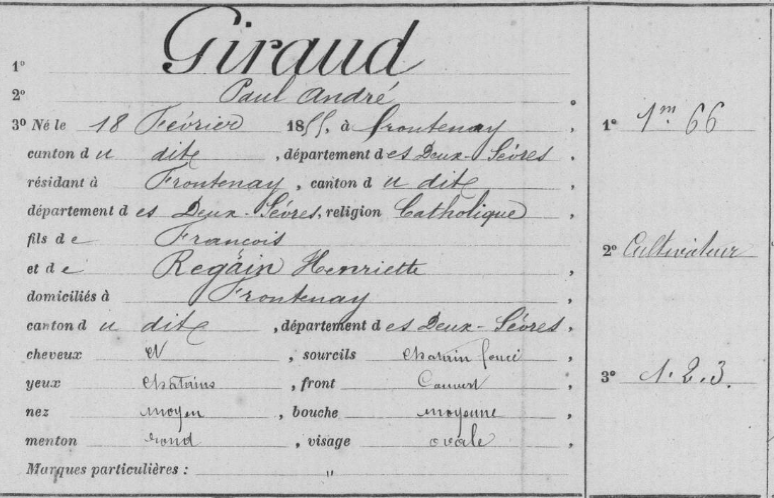 1º Giraud
2º Paul André
3º Né le 18 Février 1855, à Frontenay,
canton du dit, département des Deux-Sèvres,
résidant à Frontenay, canton du dit,
département des Deux-Sèvres, religion Catholique,
fils de François
et de Regain Henriette,
domiciliés à Frontenay,
canton du dit, département des Deux-Sèvres,
cheveux et, sourcils chatain foncé,
yeux chatains, front Couvert,
nez moyen, bouche moyenne,
menton rond, visage ovale,
Marques particulières : "
1º 1m 66
2º Cultivateur
3º 1.2.3.